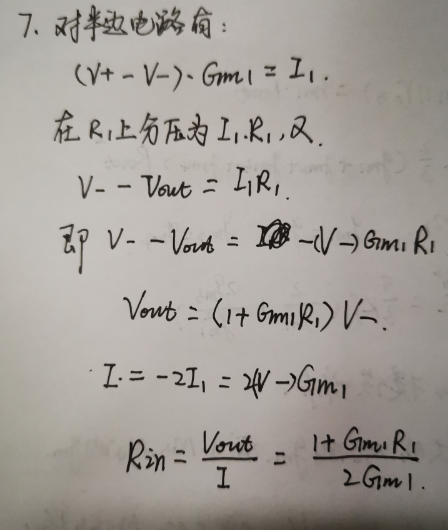 7. 对半边电路有:
(V+ - V-)·Gm1 = I1.
在R1上分压为I1·R1,又.
V- - Vout = I1R1.
即 V- - Vout = -(V-)Gm1R1
Vout = (1+Gm1R1)V-.
I = -2I1 = 2(V-)Gm1
Rin = Vout/I = (1+Gm1R1)/(2Gm1).